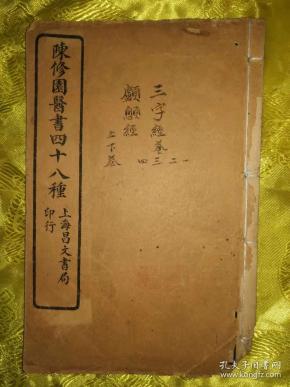 陳修園醫書四十八種
上海昌文書局
印行
三字經卷一二
三四
顱顖經
上下卷
孔夫子旧书网